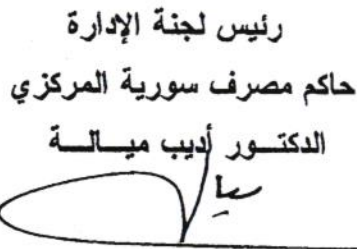 رئيس لجنة الإدارة
حاكم مصرف سورية المركزي
الدكتـــور أديب ميـــالـــة